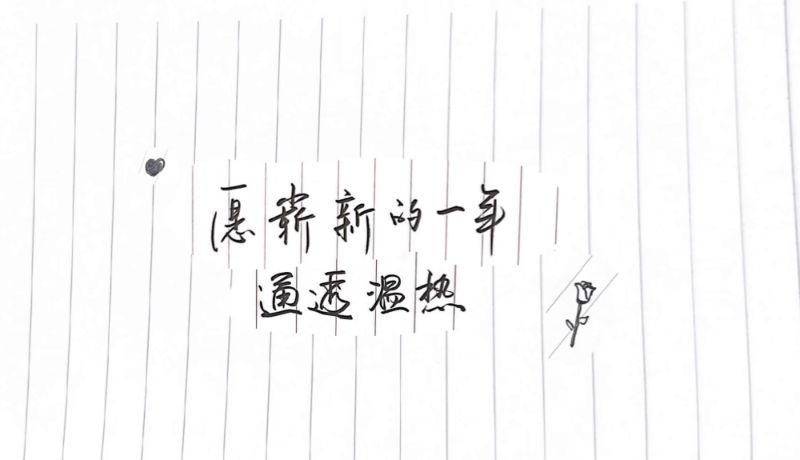 愿崭新的一年
通透温热